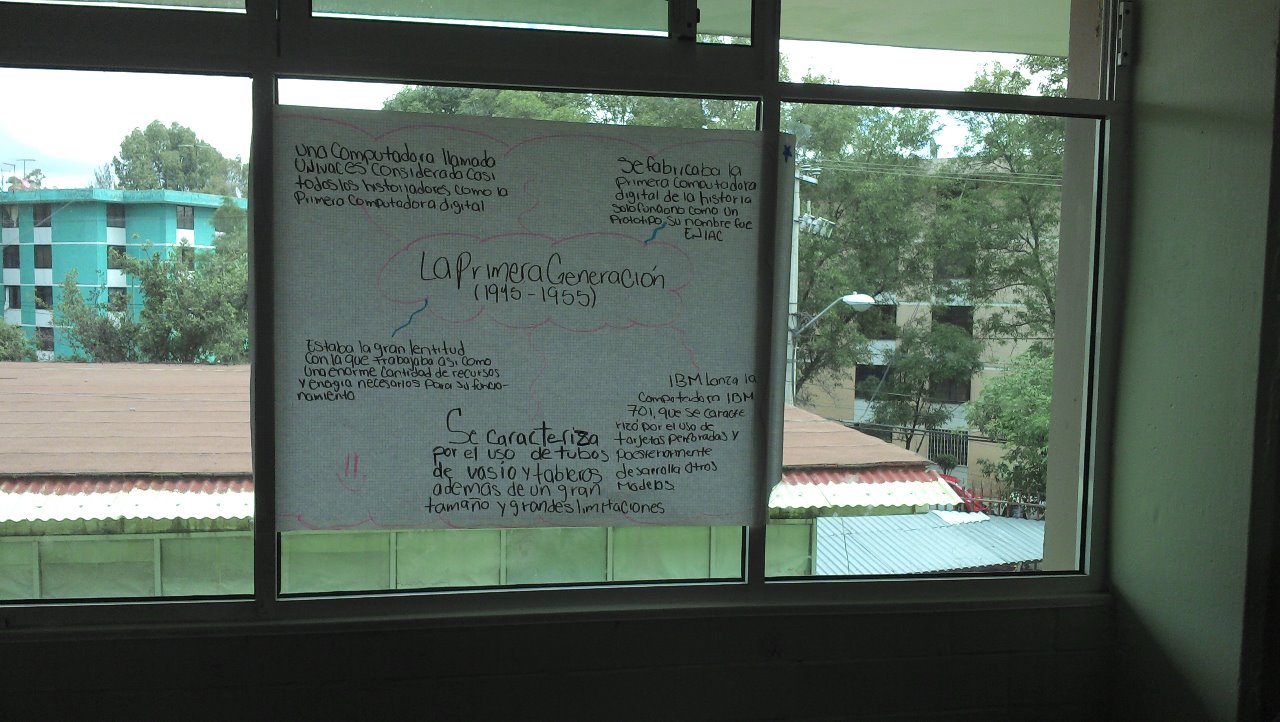 una Computadora llamada
Univac es considerada Casi
todos los historiadores como la
Primera Computadora digital
Se fabricaba la
primera Computadora
digital de la historia
solo funciono como un
Prototipo, su nombre fue
ENIAC
La Primera Generación
(1945-1955)
Estaba la gran lentitud
Con la que trabajaba asi como
una enorme cantidad de recursos
y enogia necesarios para su funcio-
namiento
IBM lanza la
Computadora IBM
701, que se caracte
rizó por el uso de
tarjetas perforadas y
posteriormente
desarrolla otros
Modelos
Se caracteriza
por el uso de tubos
de vasio y tableros
además de un gran
tamaño y grandes limitaciones